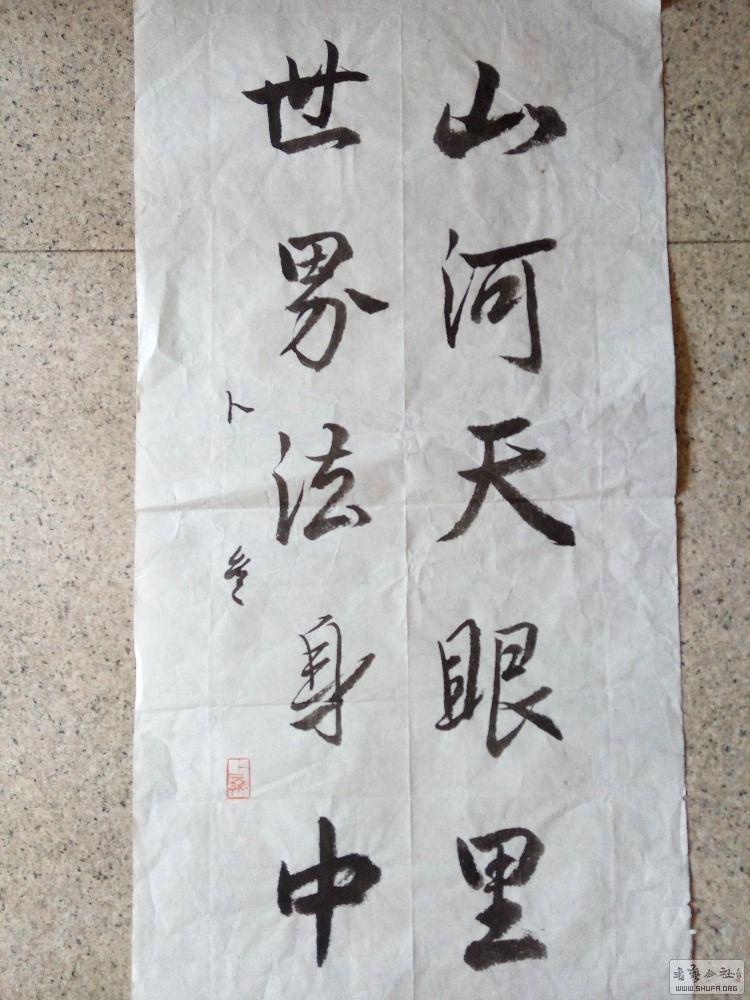 山河天眼里
世界法身中
卜
WWW.SHUFA.ORG